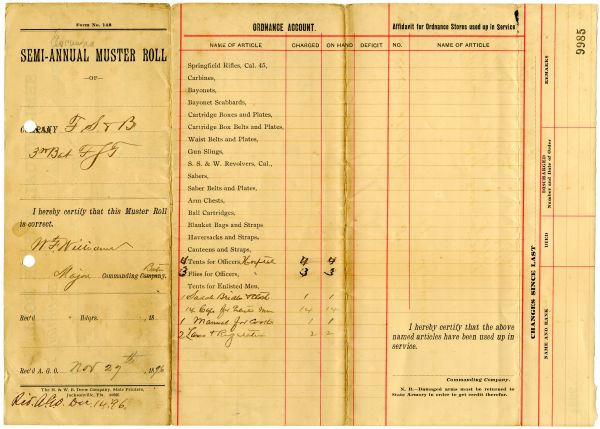 Form No. 148
SEMI-ANNUAL MUSTER ROLL
—OF—
F. S. & B
3rd Bat F S T
I hereby certify that this Muster Roll
is correct.
W F Williams
Major Commanding Company.
Rec'd Hdqrs. 18
Rec'd A. G. O. Nov 27th 1896
The H. & W. B. Drew Company, State Printers,
Jacksonville, Fla.
Rec. A.G.O. Dec. 14.96.
ORDNANCE ACCOUNT.
NAME OF ARTICLE CHARGED ON HAND DEFICIT
Springfield Rifles, Cal. 45,
Carbines,
Bayonets,
Bayonet Scabbards,
Cartridge Boxes and Plates,
Cartridge Box Belts and Plates,
Waist Belts and Plates,
Gun Slings,
S. S. & W. Revolvers, Cal.,
Sabers,
Saber Belts and Plates,
Arm Chests,
Ball Cartridges,
Blanket Bags and Straps
Haversacks and Straps,
Canteens and Straps,
4 Tents for Officers, Hospital 4 4
3 Flies for Officers, " 3 3
Tents for Enlisted Men,
1 Saddle Bridle & 1 1
14 Caps for 14 14
1 Manual for Cooks 1 1
2 Laws & Regulations 2 2
Affidavit for Ordnance Stores used up in Service
NO. NAME OF ARTICLE
I hereby certify that the above
named articles have been used up in
service.
Commanding Company.
N. B.—Damaged arms must be returned to
State Armory in order to get credit therefor.
CHANGES SINCE LAST
NAME AND RANK
DIED
DISCHARGED
Number and Date of Order
REMARKS
9985